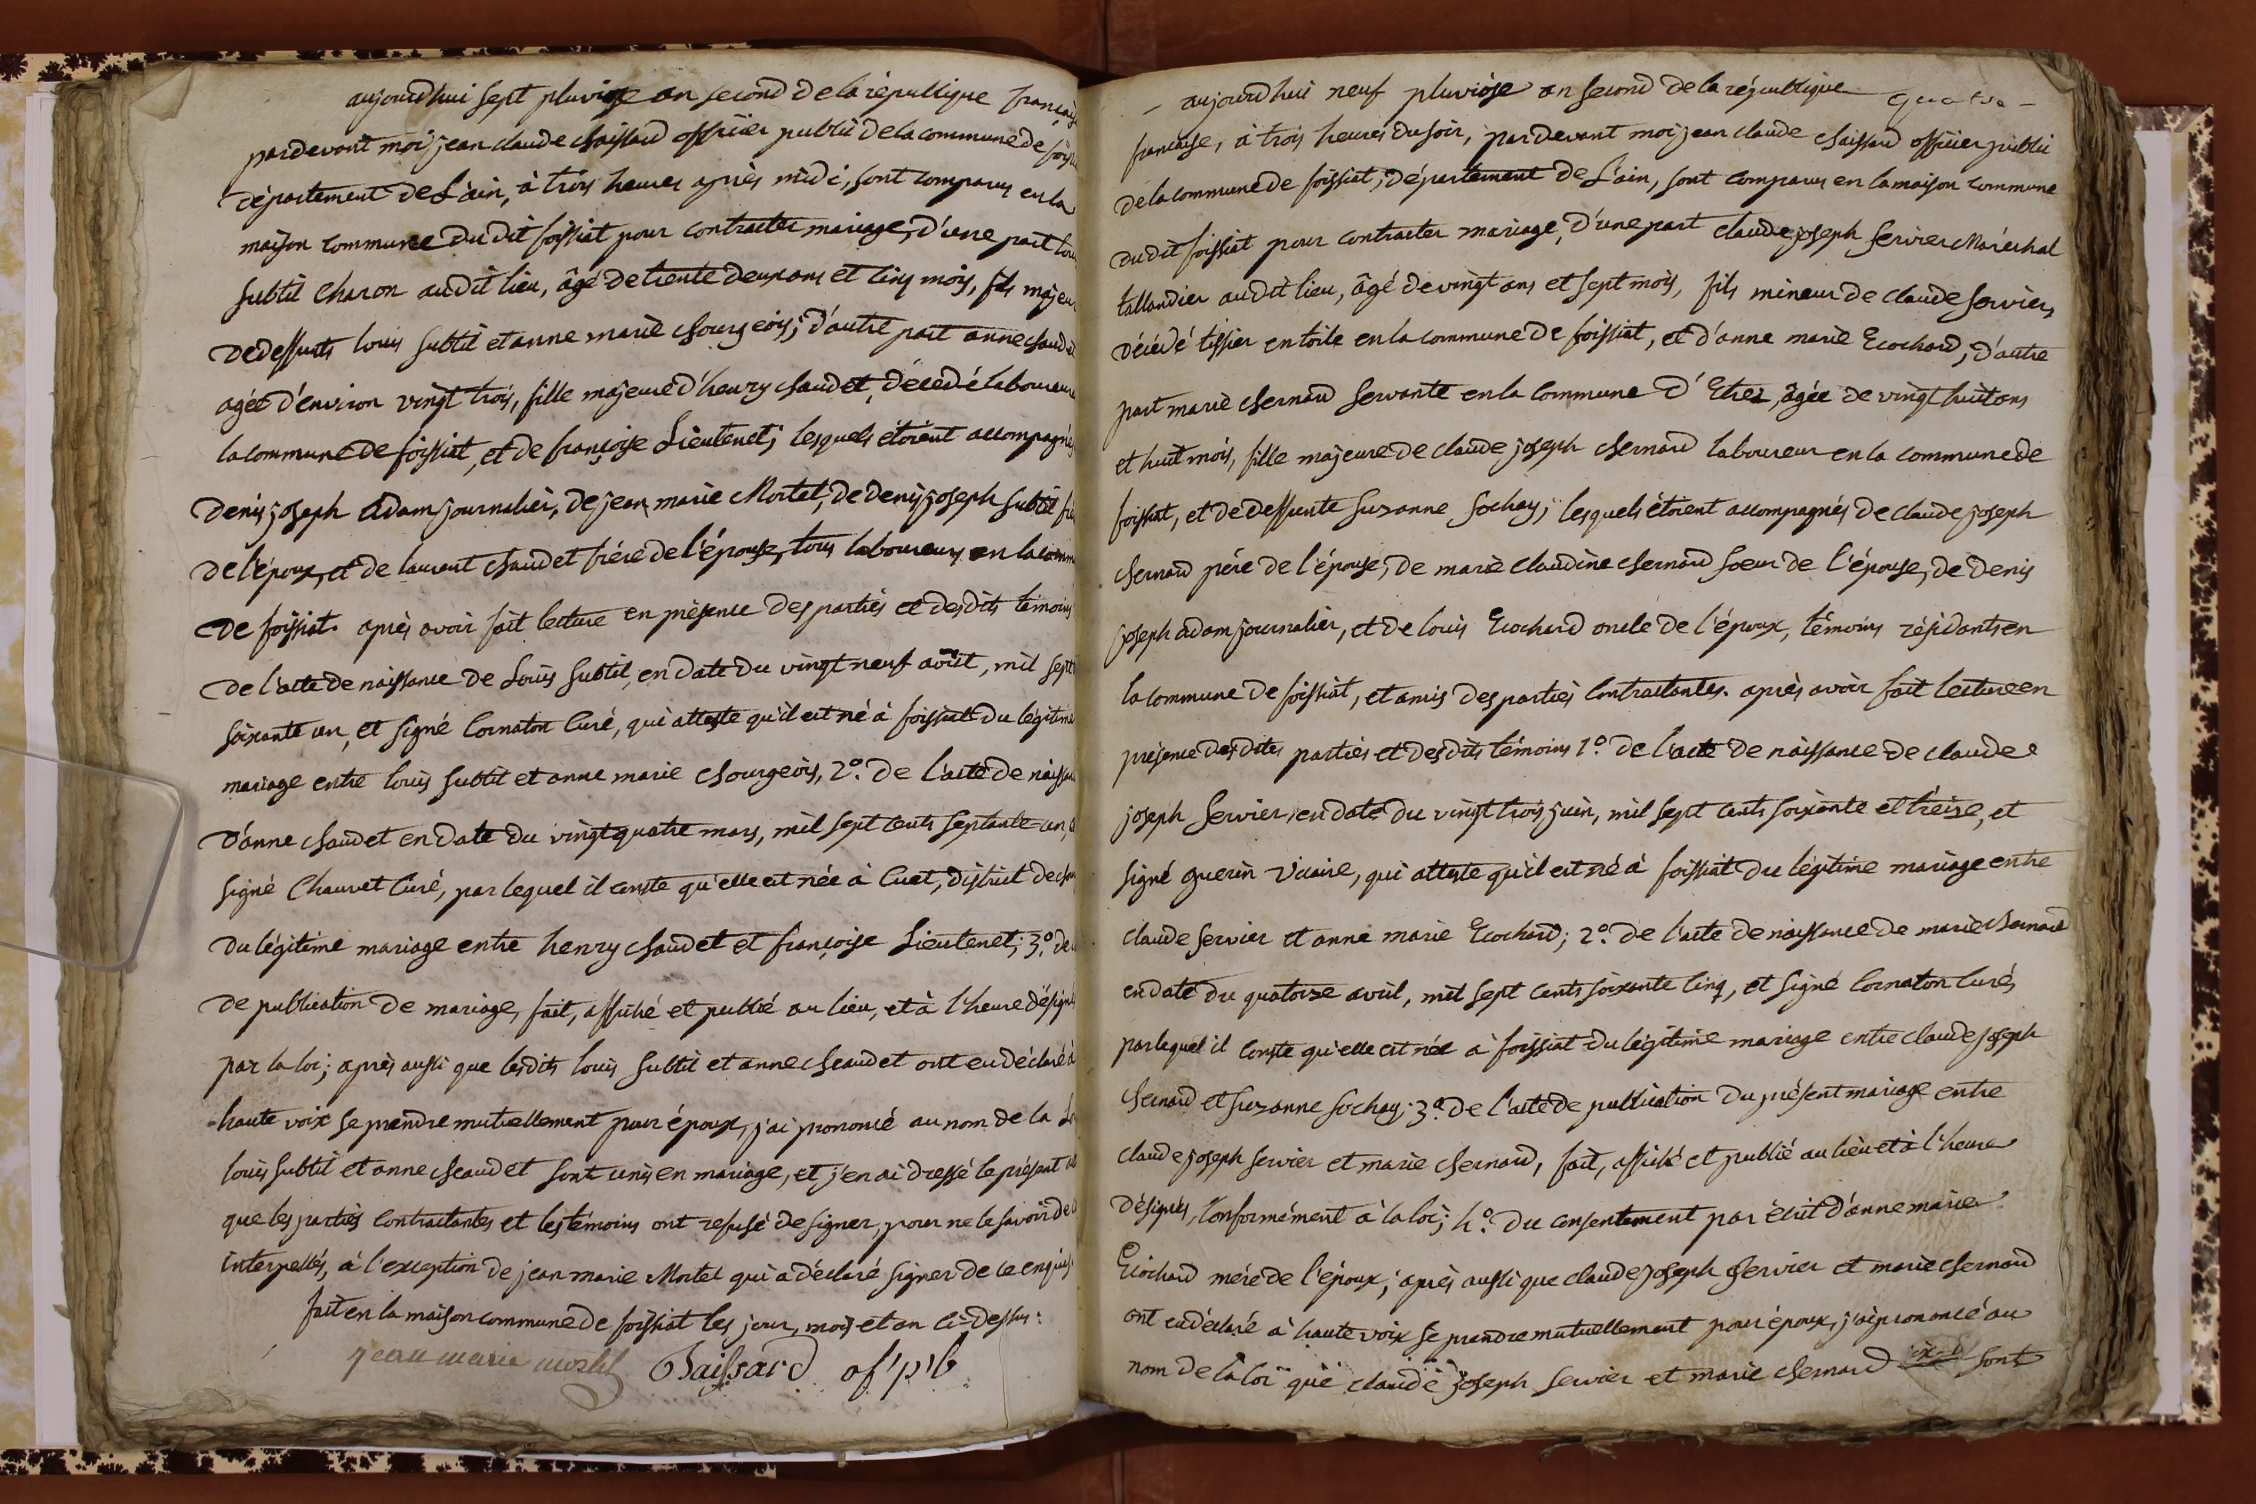 aujourd'hui sept pluviose an second de la république françaij
pardevant moi jean claude chaissard officier public de la commune de foissi
département de L'ain, à trois heures après midi, sont comparus en la
maison commune du dit foissiat pour contracter mariage, d'une part loui
subtil charon audit lieu, âgé de trente deux ans et cinq mois, fils majeur
de deffunts louis subtil et anne marie chourgeois; d'autre part anne chaudet
agée d'environ vingt trois, fille majeure d'henry chaudet, décedé laboureur
la commune de foissiat, et de françoise Lieutenet; lesquels étoient accompagnés
denis joseph adam journalier, de jean marie Mortel, de denis joseph subtil frè
de l'époux, et de laurent chaudet frère de l'épouse, tous laboureurs en la comm
de foissiat. après avoir fait lecture en présence des parties et desdits témoins
de l'acte de naissance de Louis subtil, en date du vingt neuf août, mil sept
soixante un, et signé Cornaton Curé, qui atteste qu'il est né à foissiat du légitime
mariage entre louis subtil et anne marie chourgeois, 2°. de l'acte de naissan
d'anne chaudet en date du vingt quatre mars, mil sept cents septante un,
signé Chauvet Curé, par lequel il conste qu'elle est née à Cuet, district de
du légitime mariage entre henry chaudet et françoise Lieutenet; 3°. de
de publication de mariage, fait, affiché et publié au lieu, et à l'heure désignés
par la loi; après aussi que lesdits louis subtil et anne cheaudet ont eu déclaré à
haute voix se prendre mutuellement pour époux, j'ai prononcé au nom de la Lo
louis subtil et anne cheaudet sont unis en mariage, et j'en ai dressé le présent
que les parties contractantes et les témoins ont refusé de signer, pour ne le savoir de
interpellés, à l'exception de jean marie Mortel qui a déclaré signer de ce enquis
fait en la maison commune de foissiat les jour, mois et an ci-dessus:
jean marie mortel Chaissard of' p' b
quatre
aujourd'hui neuf pluviôse an second de la république
francaise, à trois heures du soir, pardevant moi jean claude chaissard officier public
de la commune de foissiat, département de L'ain, sont comparus en la maison commune
dudit foissiat pour contracter mariage, d'une part claude joseph servier Maréchal
tallandier audit lieu, âgé de vingt ans et sept mois, fils mineur de claude servier,
décédé tissier en toile en la commune de foissiat, et d'anne marie Ecochard, d'autre
part marie chernard servante en la commune d'Etrez, âgée de vingt huit ans
et huit mois, fille majeure de claude joseph chernard laboureur en la commune de
foissiat, et de deffunte suzanne sochay; lesquels étoient accompagnés de claude joseph
chernard père de l'épouse, de marie claudine chernard soeur de l'épouse, de denis
joseph adam journalier, et de louis Ecochard oncle de l'époux, témoins résidants en
la commune de foissiat, et amis des parties contractantes. après avoir fait lecture en
présence desdites parties et desdits témoins 1°. de l'acte de naissance de claude
joseph servier en date du vingt trois juin, mil sept cents soixante et treize, et
signé guerin vicaire, qui atteste qu'il est né à foissiat du légitime mariage entre
claude servier et anne marie Ecochard; 2°. de l'acte de naissance de marie chernard
en date du quatorze avril, mil sept cents soixante cinq, et signé Cornaton curé,
par lequel il conste qu'elle est née à foissiat du légitime mariage entre claude joseph
chernard et suzanne sochay; 3°. de l'acte de publication du présent mariage entre
claude joseph servier et marie chernard, fait, affiché et publié au lieu et à l'heure
désignés, conformément à la loi; 4°. du consentement par écrit d'anne marie
Ecochard mére de l'époux; après aussi que claude joseph servier et marie chernard
ont eu déclaré à haute voix se prendre mutuellement pour époux, j'ai prononcé au
nom de la loi que claude joseph servier et marie chernard sont